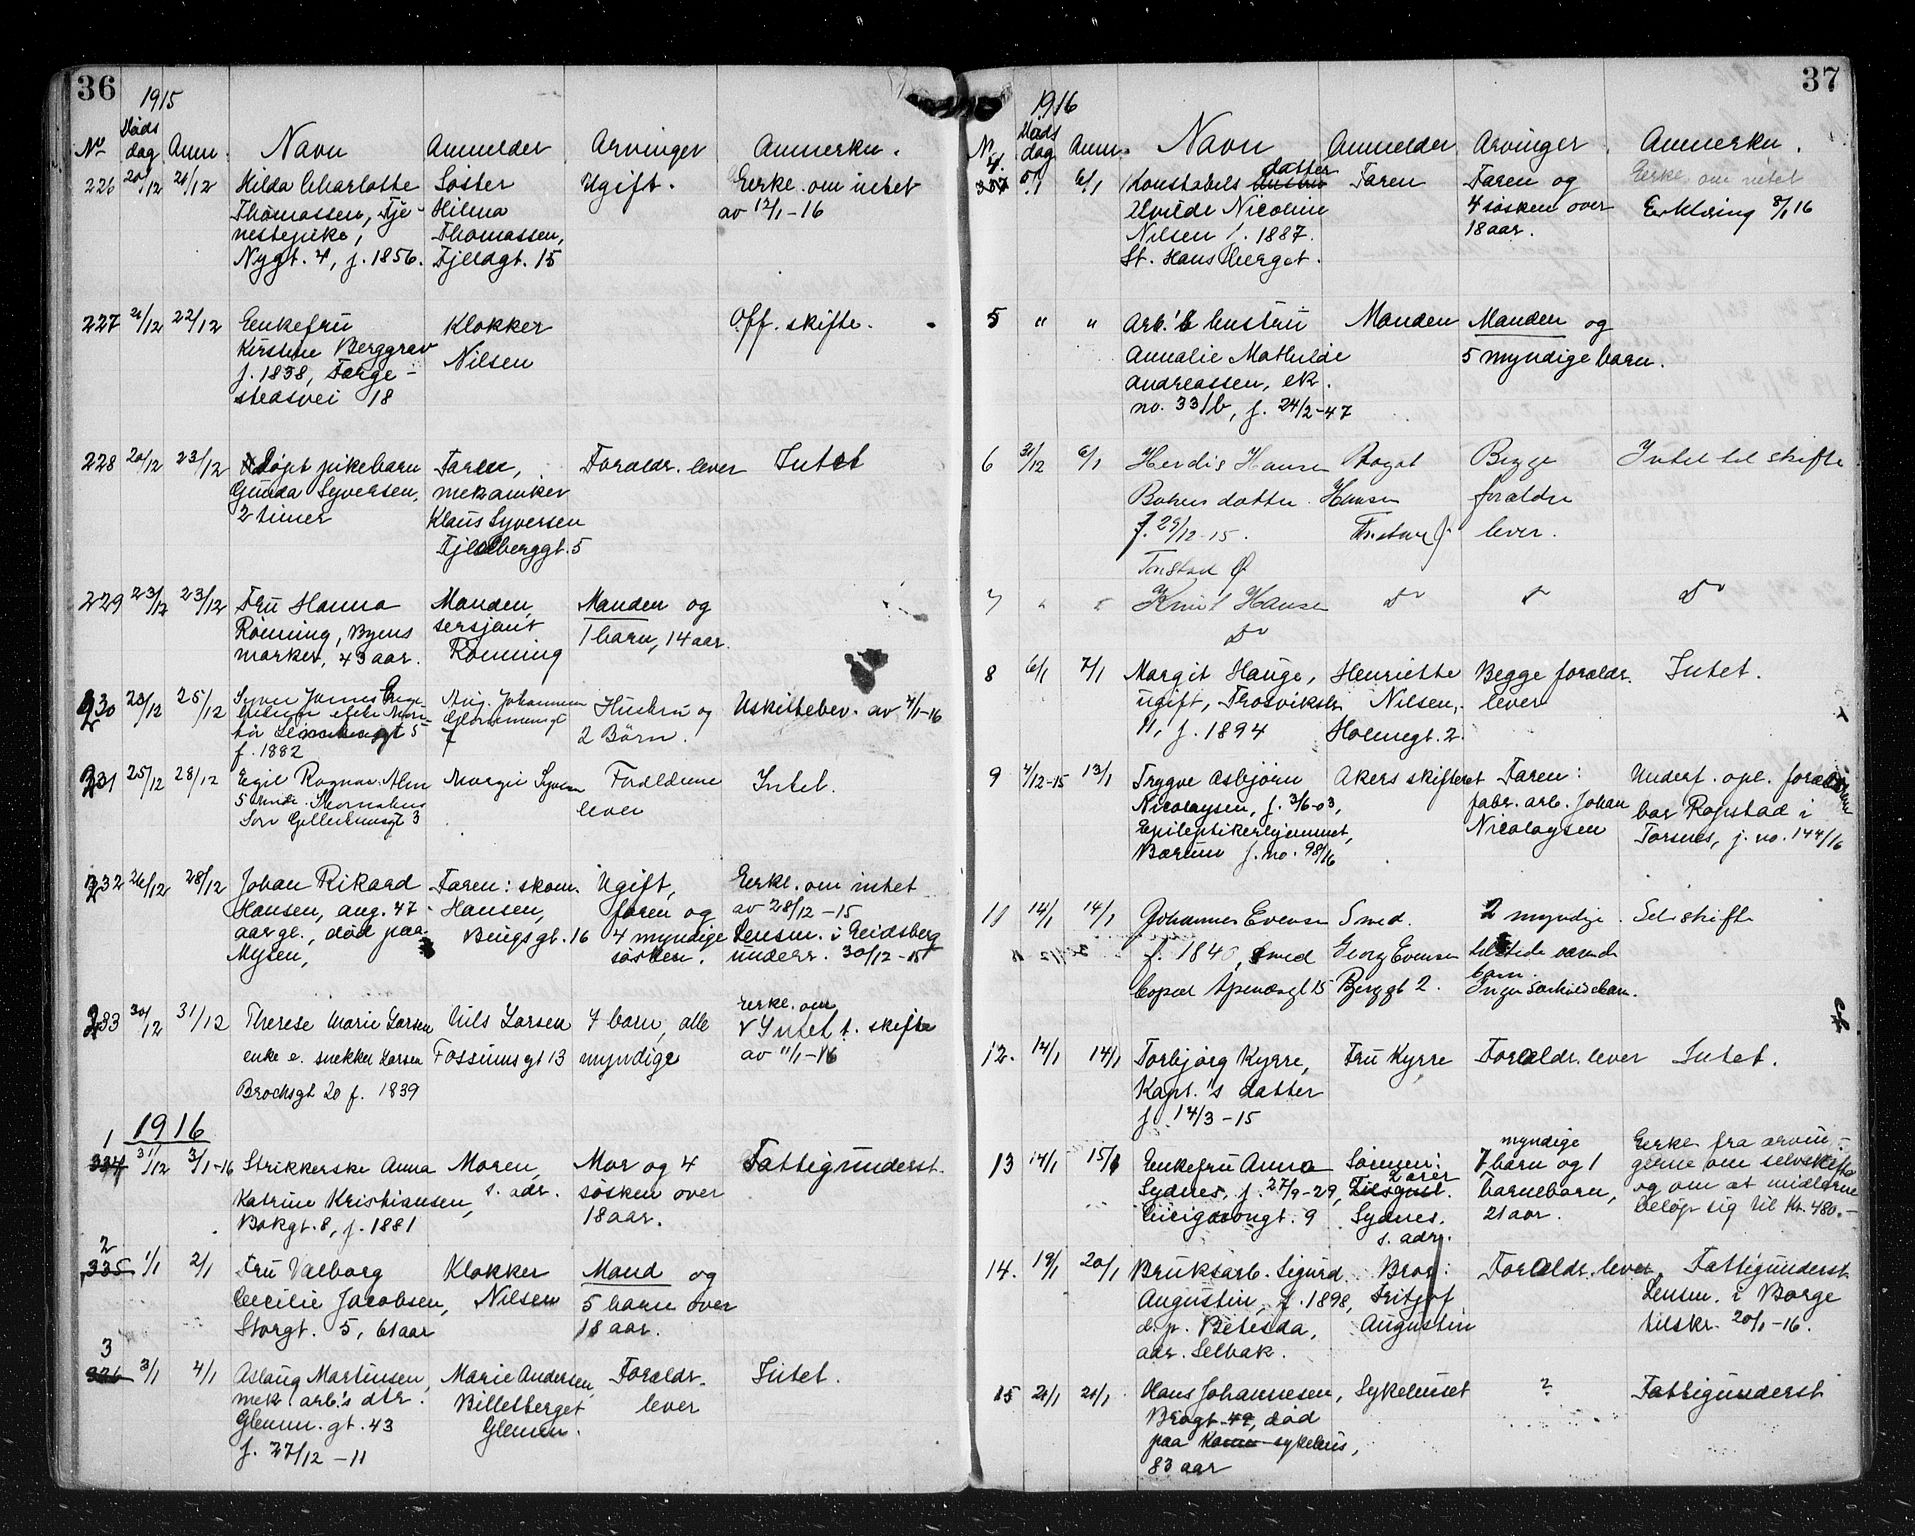 36
1915
No Døds dag Anm. Navn Anmelder Arvinger Anmerkn.
226 20/12 21/12 Hilda Charlotte Søster Ugift. Erkl. om intet
Thomassen, Tje- Hilma av 12/1-16
nestepike, Thomassen,
Nygt. 4, f. 1856. Fjeldgt. 15
227 21/12 22/12 Enkefru Klokker Off. skifte.
Kirstine Berggrav Nilsen
f. 1838, Færge-
stedsvei 18
228 20/12 23/12 Døpt pikebarn Faren, Forældr. lever Intet
Gunda Syversen, mekaniker
2 timer Klaus Syversen
Fjeldberggt. 5
229 23/12 23/12 Fru Hanna Manden, Manden og
Rønning, Byens sersjant 1 barn, 14 aar.
marker, 43 aar. Rønning
230 23/12 25/12 Johannessen Hustru og Uskiftebev. av 4/1-16
2 Børn.
f. 1882
231 25/12 28/12 Egil Ragnar Alm Margit Forældrene Intet.
5 lever
Søn Gellertsensgt 3
232 26/12 28/12 Johan Rikard Faren: skom. Ugift, Erkl. om intet
Hansen, ang. 47 Hansen, faren og av 28/12-15
aar gl., død paa Bingsgt. 16 4 myndige Lensm. i Eidsberg
Mysen, søsken. underr. 30/12-15
233 30/12 31/12 Therese Marie Larsen Nils Larsen 7 barn, alle Erkl. om
enke e. snekker Larsen Fossumsgt 13 myndige Intet t. skifte
Brochsgt 20 f. 1839 av 11/1-16
1916
1
334 31/12 3/1-16 Strikkerske Anna Moren, Mor og 4 Fattigunderst.
Katrine Kristiansen, s. adr. søsken over
Bakgt. 8, f. 1881 18 aar.
2
335 1/1 2/1 Fru Valborg Klokker Mand og
Cecilie Jacobsen, Nilsen 5 barn over
Storgt. 5, 61 aar 18 aar.
3
336 3/1 4/1 Aslaug Martinsen, Marie Andersen, Forældr. Intet.
mek. arb.'s dtr. Billetberget lever
Glemm. gt. 43 Glemm.
f. 27/12-11
37
1916
No Døds dag Anm. Navn Anmelder Arvinger Anmerkn.
4 337 5/1 6/1 Konstabels hustru datter Faren Faren og Erkl. om intet
Hvilde Nicoline 4 søsken over Erklæring 8/1 16
Nilsen f. 1887. 18 aar.
St. Hansberget.
5 " " Arb.'s hustru Manden Manden og
Annalie Mathilde 5 myndige barn.
Andreassen, ek.
no. 331b, f. 24/2-47
6 31/12 6/1 Herdis Hansen Hansen Begge Intet til skifte
datter forældre
f. 29/12-15. lever.
7 " " Knut Hansen Do Do Do
Do
8 6/1 7/1 Margit Hauge, Henriette Begge forældr. Intet.
ugift, Trosviksbr. Nilsen, lever
11, f. 1894 Holmegt. 2.
9 4/12-15 13/1 Trygve Asbjørn Akers skifteret Faren: Underf. opl. forældrene
Nicolaysen, f. 3/6-03, fabr. arb. Johan bor Rognstad i
Epileptikerhjemmet, Nicolaysen Torsnes, j. no. 144/16
Bærum j. no. 98/16
11 12/1 14/1 Johannes Evensen Smed 2 myndige Selvskifte
f. 1840, smed Georg Evensen tilstede værende
Apenesgt 15 Berggt 2. barn.
Ingen særkuldsbarn.
12. 12/1 14/1 Torbjørg Kyrre, Fru Kyrre Forældr. lever Intet.
Kapt.'s datter
f. 14/3-15
13 14/1 15/1 Enkefru Anna Sønnen: 7 myndige barn og 1 Erkl. fra arvin-
Sydnes, f. 27/9-29, Lærer barnebarn, gerne om selvskifte
Cicignongt. 9 Sydnes. 21 aar. og om at midlerne
s. adr. beløp sig til Kr. 480.-
14. 19/1 20/1 Bruksarb. Sigurd Bror: Forældr. lever Fattigunderst
Augustin, f. 1898, Fritjof Lensm. i Borge
d. p. Betesda, Augustin tilskr. 20/1-16.
adr. Selbak.
15 21/1 21/1 Hans Johannesen, Sykehuset ? Fattigunderst
Brogt. 42, død
paa Kom sykehus,
83 aar